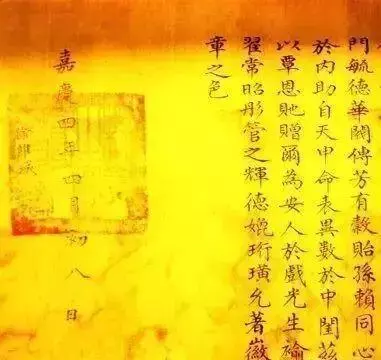 門毓德華閥傳芳有穀貽孫賴同心
於内助自天申命表異數於中閨茲
以覃恩貤贈爾為安人於戲光生褕
翟常昭彤管之輝德媲珩璜允著徽
章之色
嘉慶四年四月初八日